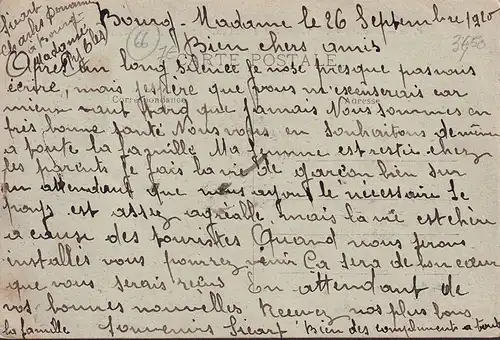 Sicart
Charles Douanier
à Bourg
Madame
Py Ples
Bourg-Madame le 26 Septembre 1920
(66)
3650
Bien chers amis
CARTE POSTALE
Après un long silence Je nose presque pas vous
écrire, mais jespère que vous m'escuserais car
Correspondance
Adresse
mieux vaut tard que Jamais Nous sommes en
très bonne santé Nous vous en souhaitons de même
a toute la famille Ma femme est restée chez
les parents Je fais la vie de garçon bien sur
en attendant que nous ayons le nécessaire Le
pays est assez agréable mais la vie est chère
a cause des touristes Quand nous serons
installés vous pourrez venir Ça sera de bon cœur
que vous serais reçus En attendant de
vos bonnes nouvelles Recevez nos plus bons
souvenirs Sicart Bien des compliments a toute
la famille